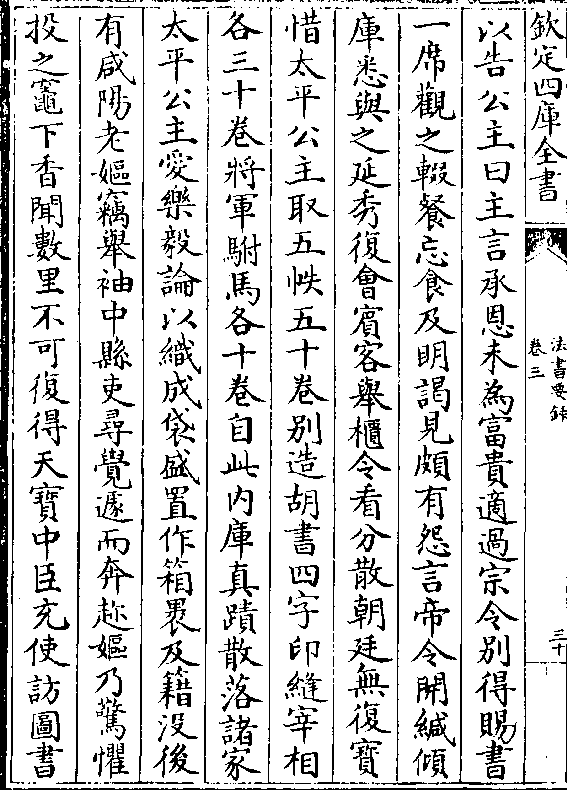 欽定四庫全書
法書要錄
卷三
三十
以告公主曰主言承恩未為富貴適過宗令別得賜書
一席觀之輟餐忘食及明謁見頗有怨言帝令開緘傾
庫悉與之延秀復會賓客舉櫃令看分散朝廷無復寶
惜太平公主取五帙五十卷別造胡書四字印縫宰相
各三十卷將軍駙馬各十卷自此内庫真蹟散落諸家
太平公主愛樂毅論以織成袋盛置作箱裏及籍没後
有咸陽老嫗竊舉袖中縣吏尋覺遽而奔趂嫗乃驚懼
投之竈下香聞數里不可復得天寶中臣充使訪圖書